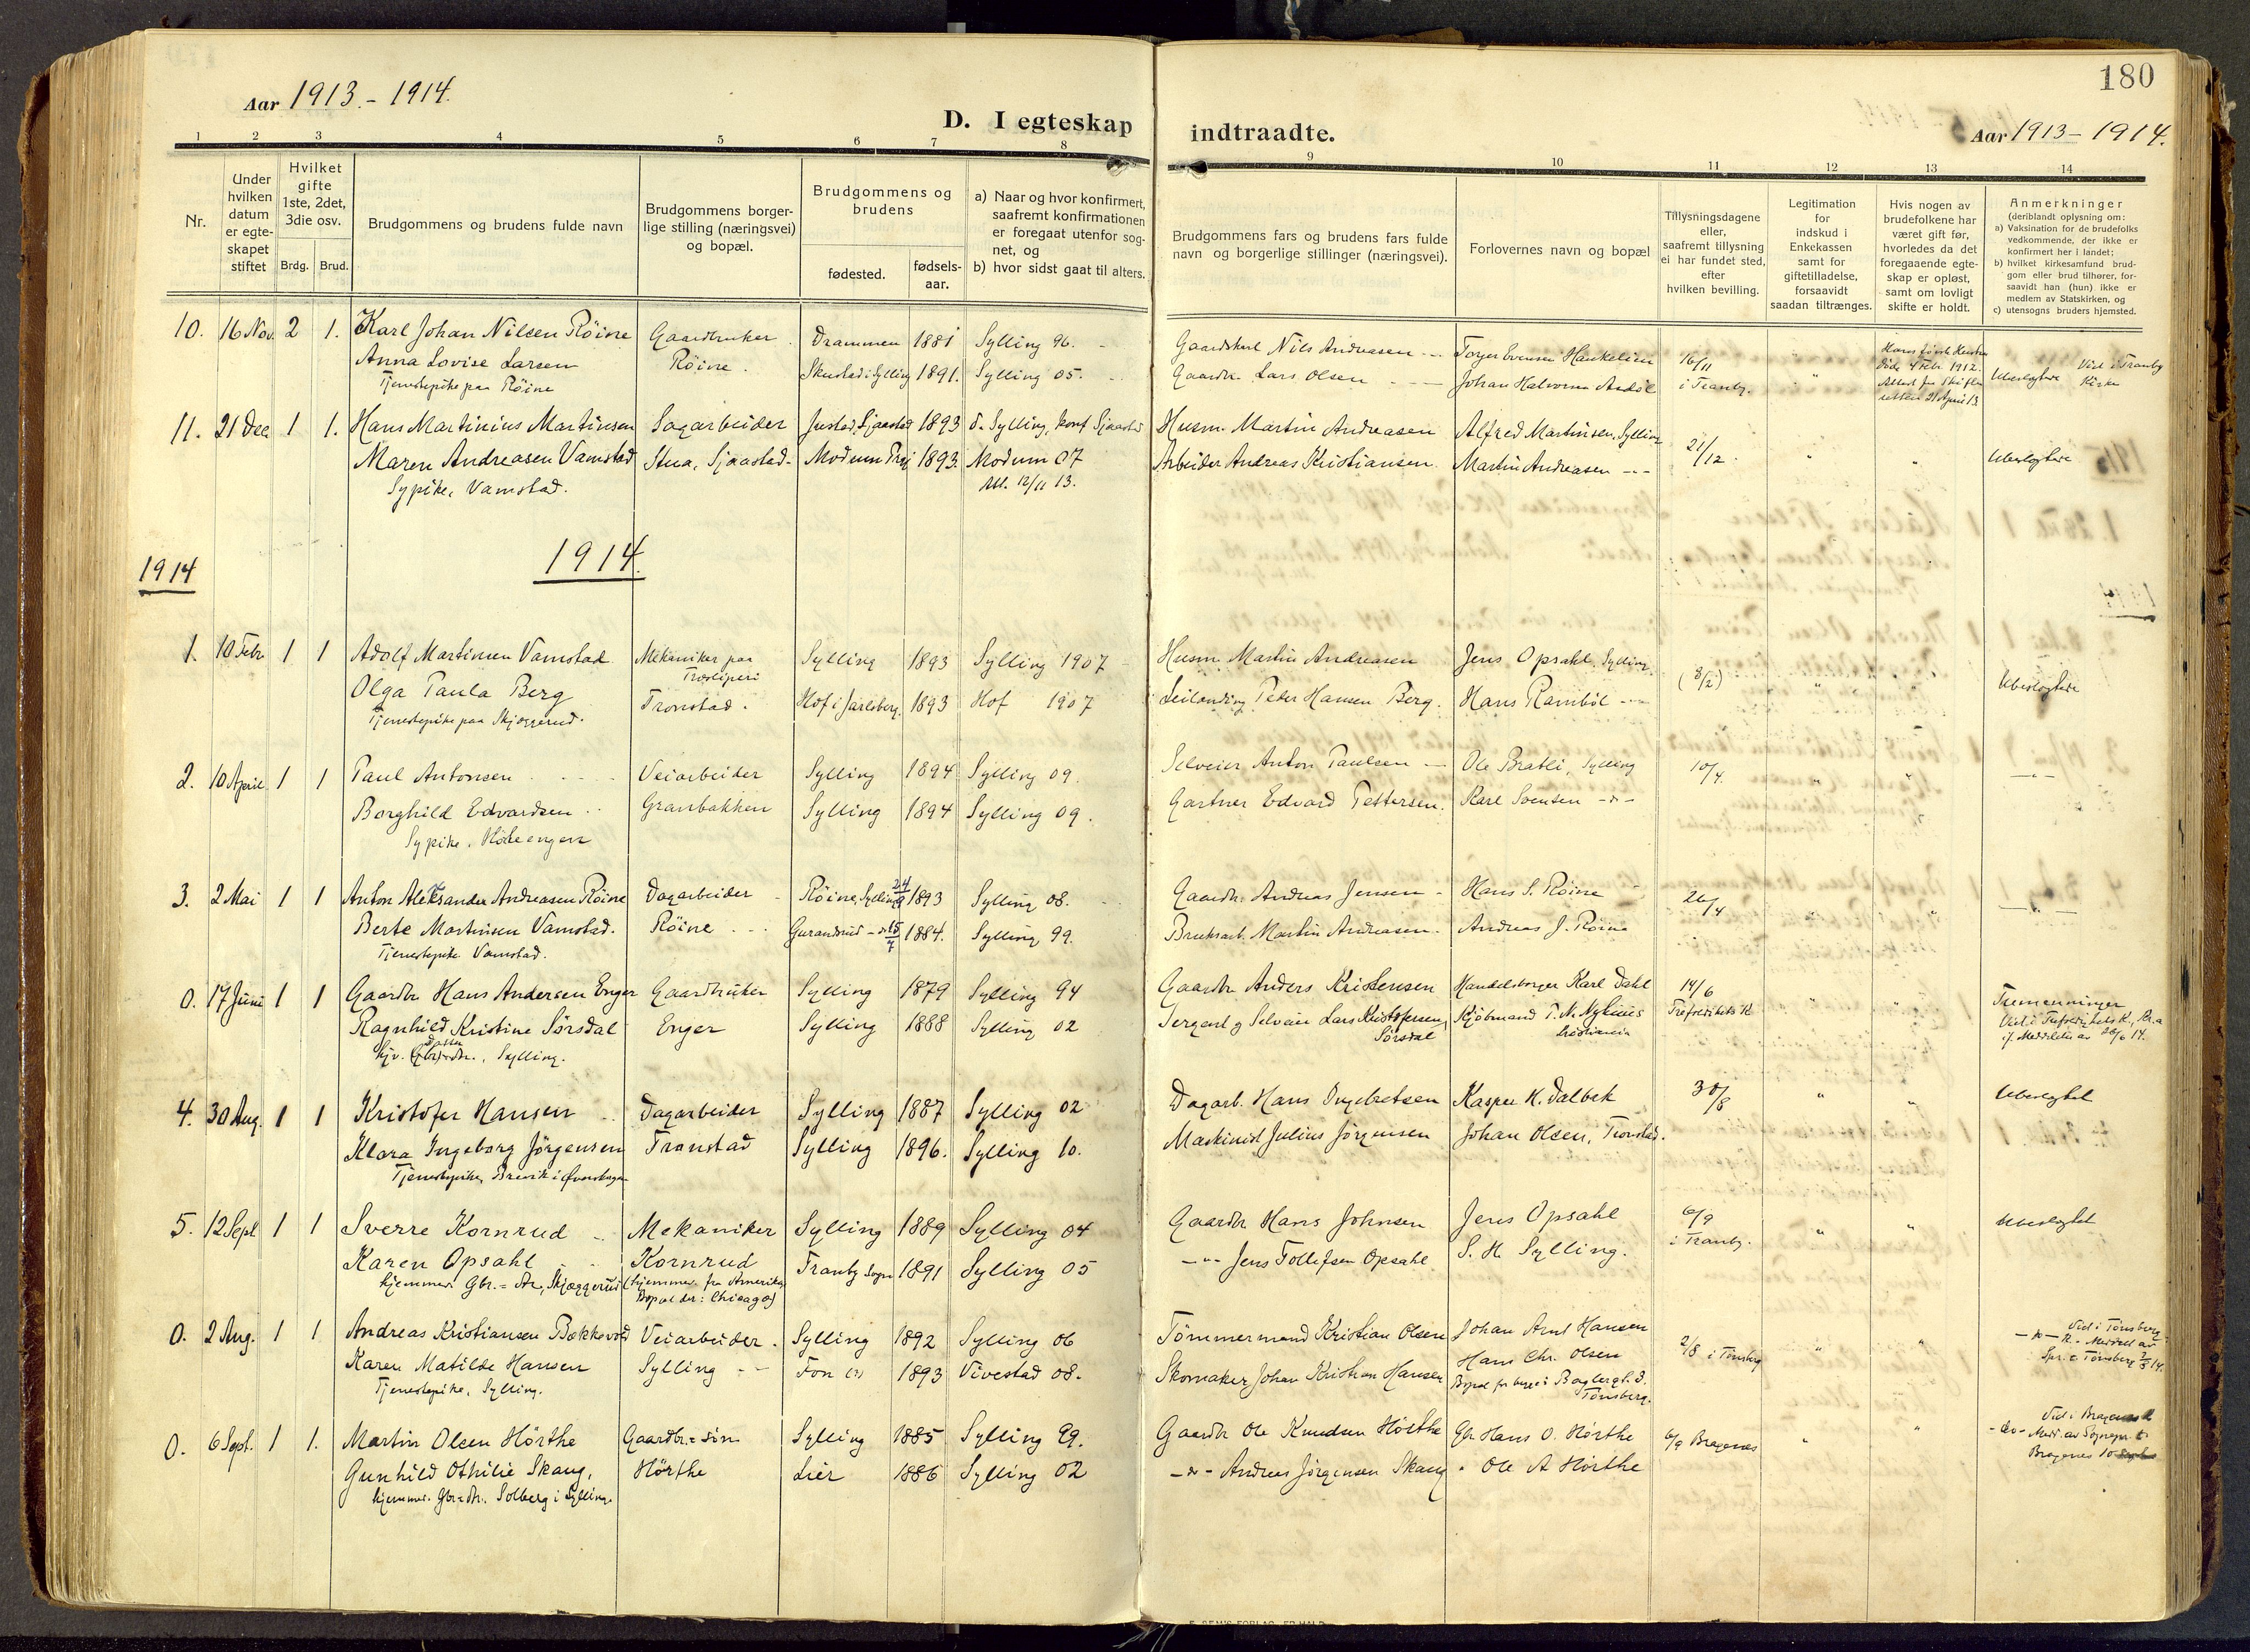 180
Aar 1913.-1914.
D. I egteskap indtraadte.
Aar 1913-1914.
1 2 3 4 5 6 7 8 9 10 11 12 13 14
Nr.
Under hvilken datum er egte-skapet stiftet
Hvilket gifte 1ste, 2det, 3die osv.
Brdg. Brud.
Brudgommens og brudens fulde navn
Brudgommens borger-lige stilling (næringsvei) og bopæl.
Brudgommens og brudens
fødested.
fødsels-aar.
a) Naar og hvor konfirmert, saafremt konfirmationen er foregaat utenfor sog-net, og
b) hvor sidst gaat til alters.
Brudgommens fars og brudens fars fulde navn og borgerlige stillinger (næringsvei).
Forlovernes navn og bopæl
Tillysningsdagene eller, saafremt tillysning ei har fundet sted, efter hvilken bevilling.
Legitimation for indskud i Enkekassen samt for giftetilladelse, forsaavidt saadan tiltrænges.
Hvis nogen av brudefolkene har været gift før, hvorledes da det foregaaende egte-skap er opløst, samt om lovligt skifte er holdt.
Anmerkninger
(deriblandt oplysning om:
a) Vaksination for de brudefolks vedkommende, der ikke er konfirmert her i landet;
b) hvilket kirkesamfund brud-gom eller brud tilhører, for-saavidt han (hun) ikke er medlem av Statskirken, og
c) utensogns bruders hjemsted.
10. 16 Nov. 2 1. Karl Johan Nilsen Röine Gaardbruker Drammen 1881 Sylling 96. Gaardskarl Nils Andreasen Torger Evensen 16/11
Anna Lovise Larsen Röine. Skustad i Sylling 1891. Sylling 05. Gaardbr. Lars Olsen Johan Halvorsen i Tranby. Ubeslegtede Viet i Tranby Kirke
Tjenestepike paa Röine
11. 21 Dec 1 1. Hans Martinius Martinsen Sagarbeider 1893 Husm. Martin Andreasen Alfred Martinsen, Sylling 21/12
Maren Andreasen Vamstad Stua, Sjaastad. Modum 1893. Modum 07 Arbeider Andreas Kristiansen. Martin Andreasen Ubeslegtede
Sypike, Vamstad. 12/11 13.
1914
1914.
1. 10 Febr. 1 1 Adolf Martinsen Vamstad Mekaniker paa Træsliperi Sylling 1893 Sylling 1907 Husm. Martin Andreasen Jens Opsahl, Sylling (8/2)
Olga Paula Berg Tronstad. Hof i Jarlsberg. 1893 Hof 1907 Leilænding Peter Hansen Berg. Hans Ramböl Ubeslegtede
Tjenestepike paa Skjæggerud.
2. 10 April 1 1 Paul Antonsen Veiarbeider Sylling 1894 Sylling 09. Selveier Anton Paulsen Ole Bratli, Sylling 10/4.
Borghild Edvardsen Granbakken Sylling 1894 Sylling 09. Gartner Edvard Pettersen. Karl Svensen
Sypike,
3. 2 Mai 1 1 Anton Aleksander Andreasen Röine Dagarbeider Röine, Sylling 1893 Sylling 08. Gaardbr. Andreas Jensen Hans S. Röine 26/4
Berte Martinsen Vamstad. Röine Gurandsrud 15/7 1884. Sylling 99. Bruksarb. Martin Andreasen. Andreas J. Röine
Tjenestepike Vamstad.
0. 17 Juni 1 1 Gaardbr Hans Andersen Enger Gaardbruker Sylling 1879 Sylling 94 Gaardbr Anders Kristensen Handelsborger Karl Dahl 14/6 Tremenninger
Ragnhild Kristine Sørsdal Enger Sylling 1888 Sylling 02 Sergent og Selveier Lars Kristofersen Sørsdal Kjöbmand Kristiania Trefoldighets K.
Sylling.
4. 30 Aug. 1 1 Kristofer Hansen Dagarbeider Sylling 1887 Sylling 02 Dagarb. Hans Ingebretsen Kasper H. Dalbek 30/8 Ubeslegtet
Klara Ingeborg Jörgensen Tronstad Sylling 1896. Sylling 10. Maskinist Julius Jörgensen Johan Olsen, Tronstad.
Tjenestepike,
5. 12 Sept 1 1 Sverre Kornrud Mekaniker Sylling 1889 Sylling 04 Gaardbr Hans Johnsen Jens Opsahl 6/9 Ubeslegtet
Karen Opsahl Kornrud Tranby Sogn 1891 Sylling 05 Jens Tollefsen Opsahl S. H. Sylling. i Tranby.
hjemmev. Gbr.=dtr., Skjæggerud (hjemmev. fra Amerika, Bopæl der: Chicago)
0. 2 Aug. 1 1. Andreas Kristiansen Bækkevold Veiarbeider. Sylling 1892 Sylling 06 Tömmermand Kristian Olsen Johan Arnt Hansen 2/8 i Tönsberg Viet i Tönsberg
Karen Matilde Hansen Sylling Fon 1893 Vivestad 08. Skomaker Johan Kristian Hansen Hans Chr. Olsen
Tjenestepike, Sylling. Tönsberg.
0. 6 Sept. 1 1. Martin Olsen Hörthe Gaardbr.=sön Sylling 1885 Sylling 99. Gaardbr Ole Knudsen Hörthe Gbr Hans O. Hörthe 6/9 Bragenes
Gunhild Othilie Skaug, Hörthe Lier 1886 Sylling 02 Andreas Jörgensen Skaug Ole A Hörthe
hjemmev. Gbr=dtr. Solberg i Sylling.